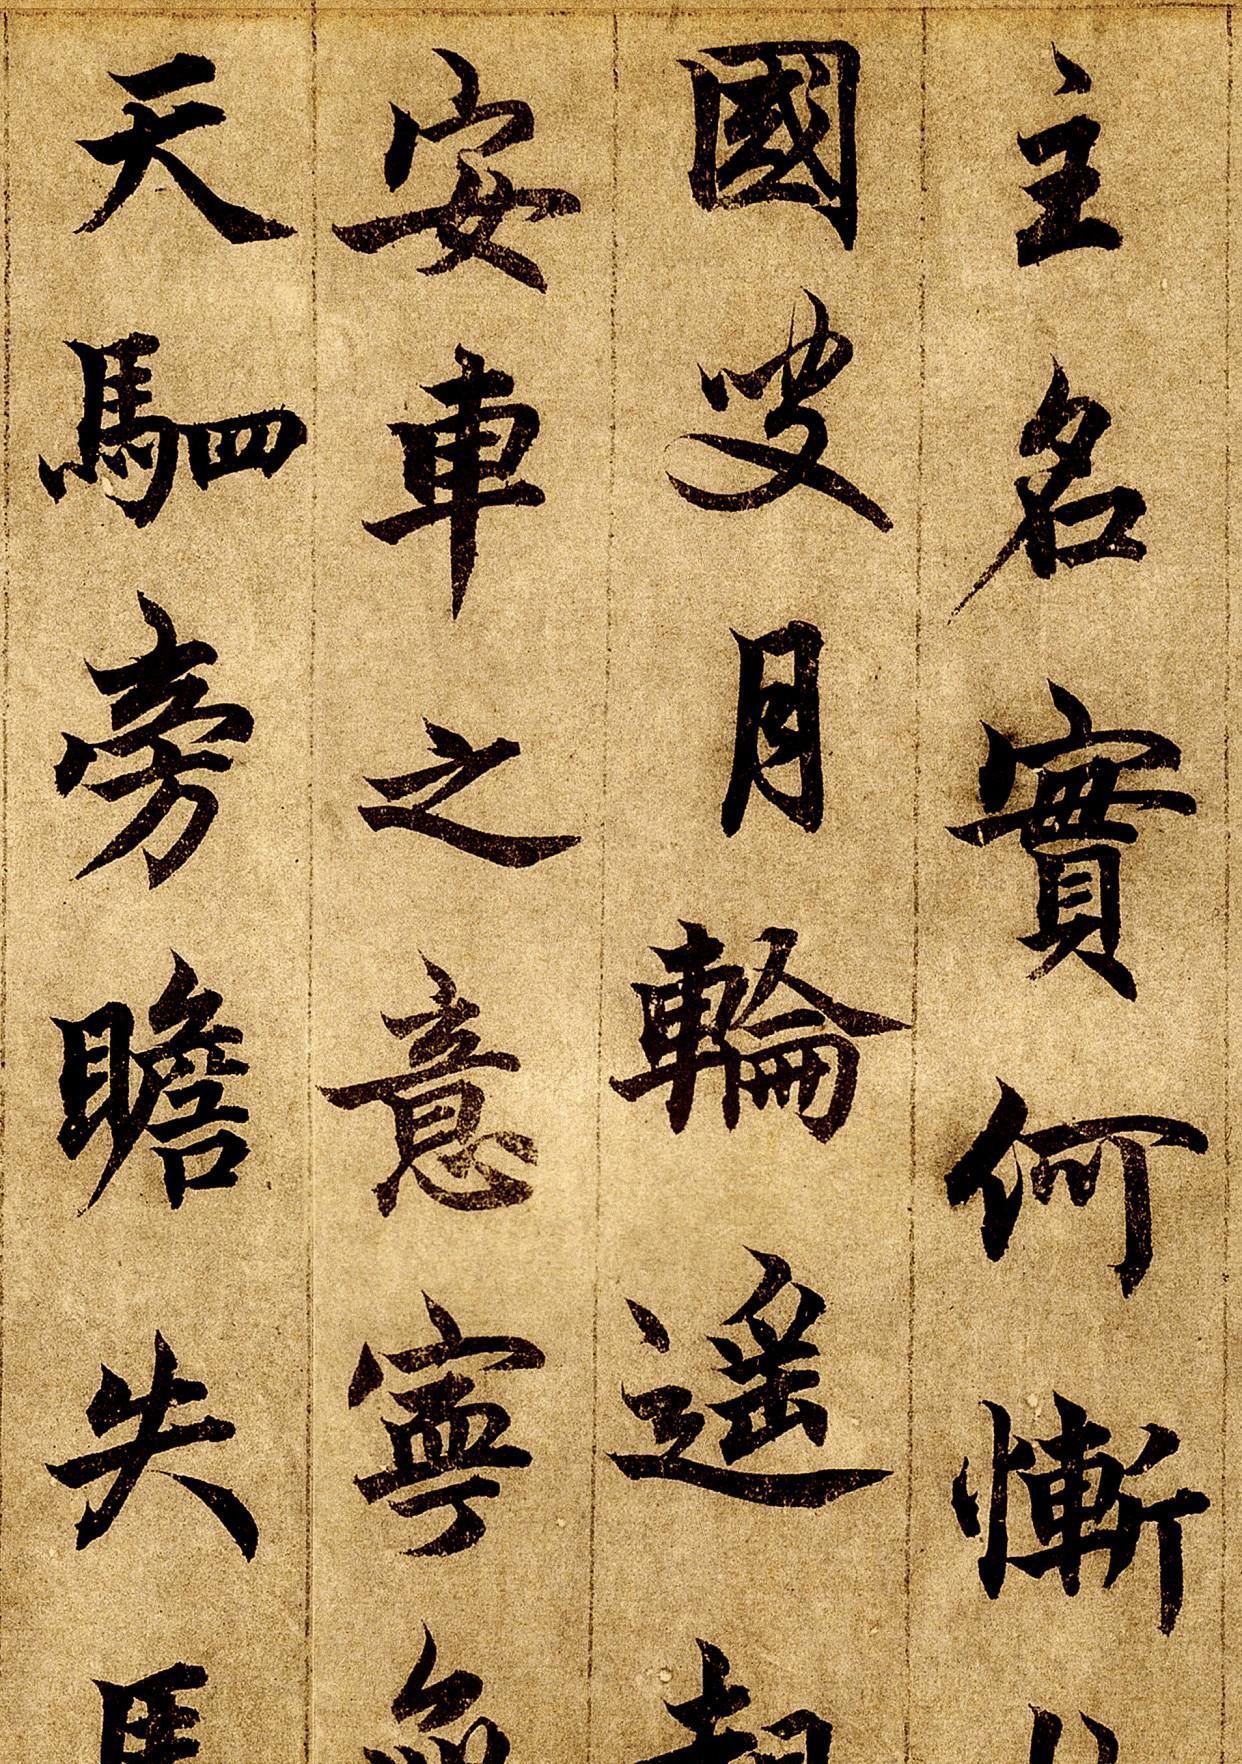 主名實何慚
國叟月輪遥
安車之意寧無
天駟旁瞻失馬